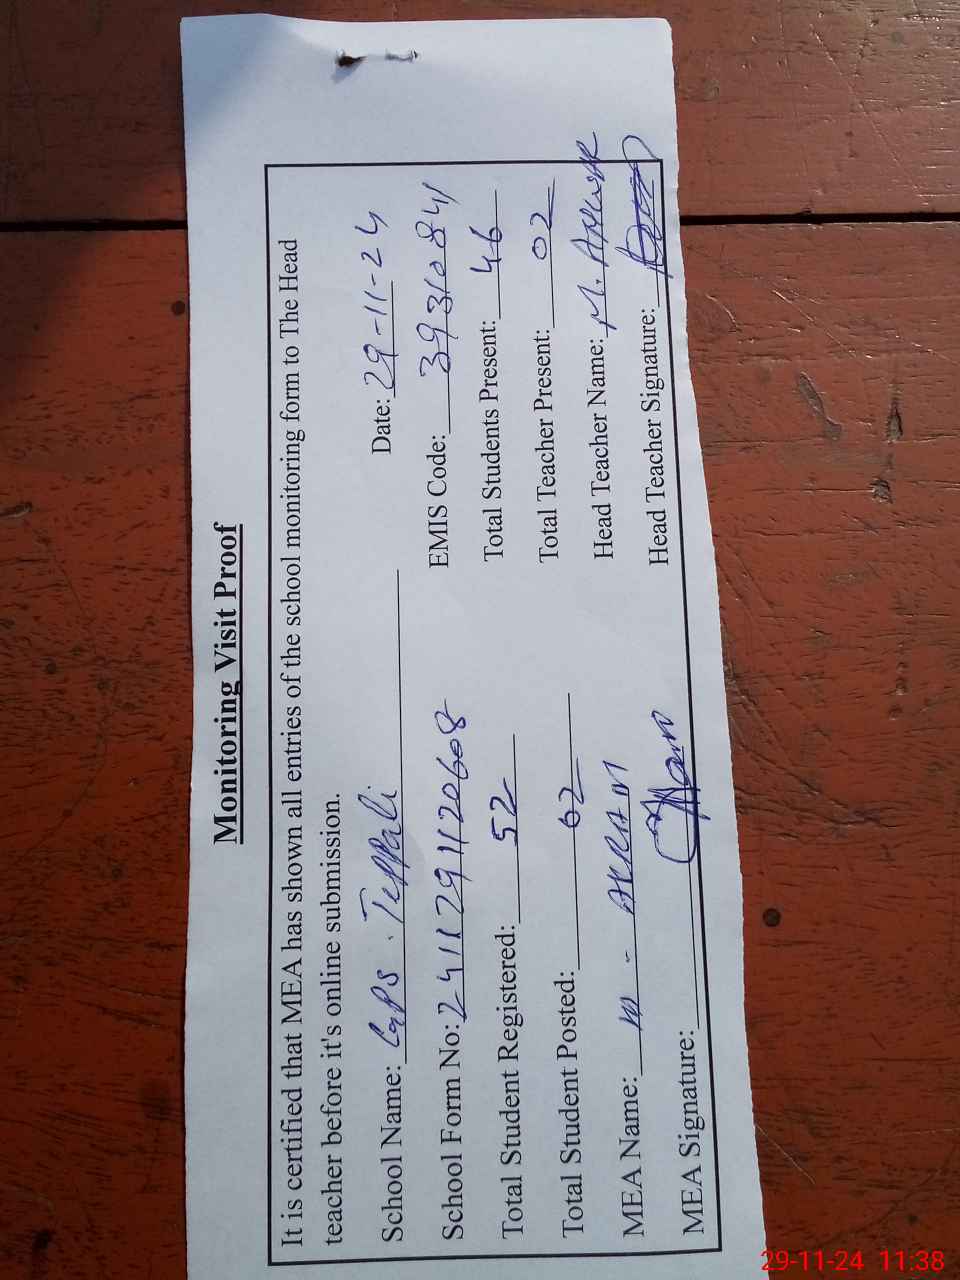 Monitoring Visit Proof
It is certified that MEA has shown all entries of the school monitoring form to The Head
teacher before it's online submission.
School Name: GPS. Date: 29-11-24
School Form No: 24111291120608 EMIS Code: 39310841
Total Student Registered: 52 Total Students Present: 46
Total Student Posted: 02 Total Teacher Present: 02
MEA Name: M - AKRAM Head Teacher Name: M.
MEA Signature: Head Teacher Signature:
29-11-24 11:38